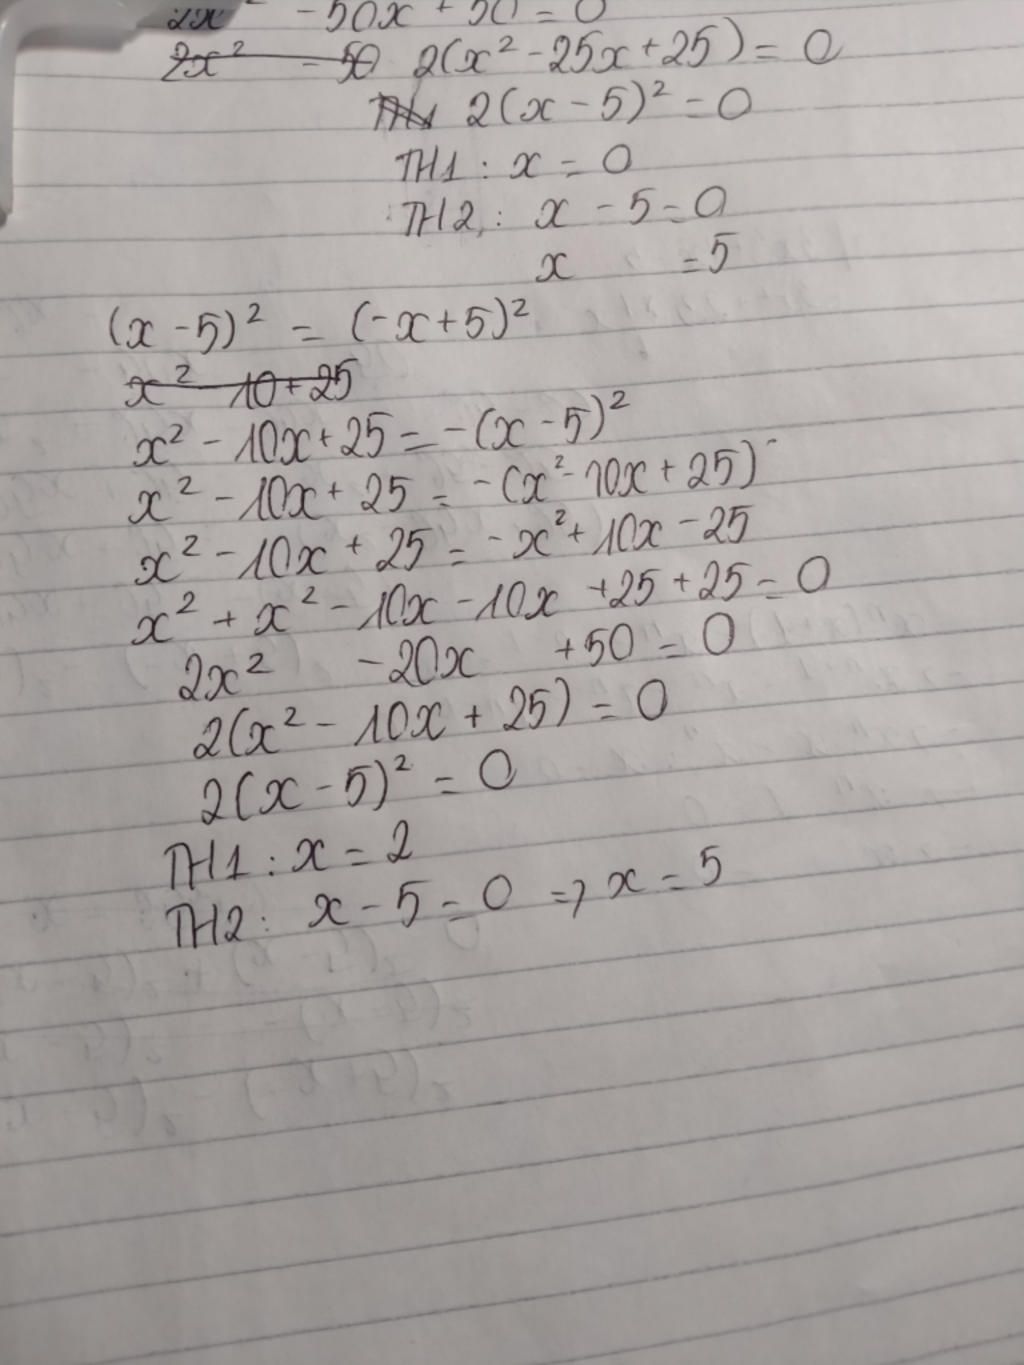 2x² - 50x + 50 = 0
2x² - 50 2(x² - 25x + 25) = 0
TH1 2(x - 5)² = 0
TH1 : x = 0
TH2 : x - 5 = 0
x = 5
(x - 5)² = (-x + 5)²
x² 10 + 25
x² - 10x + 25 = -(x - 5)²
x² - 10x + 25 = -(x² - 10x + 25)
x² - 10x + 25 = -x² + 10x - 25
x² + x² - 10x - 10x + 25 + 25 = 0
2x² - 20x + 50 = 0
2(x² - 10x + 25) = 0
2(x - 5)² = 0
TH1 : x = 2
TH2 : x - 5 = 0 => x = 5